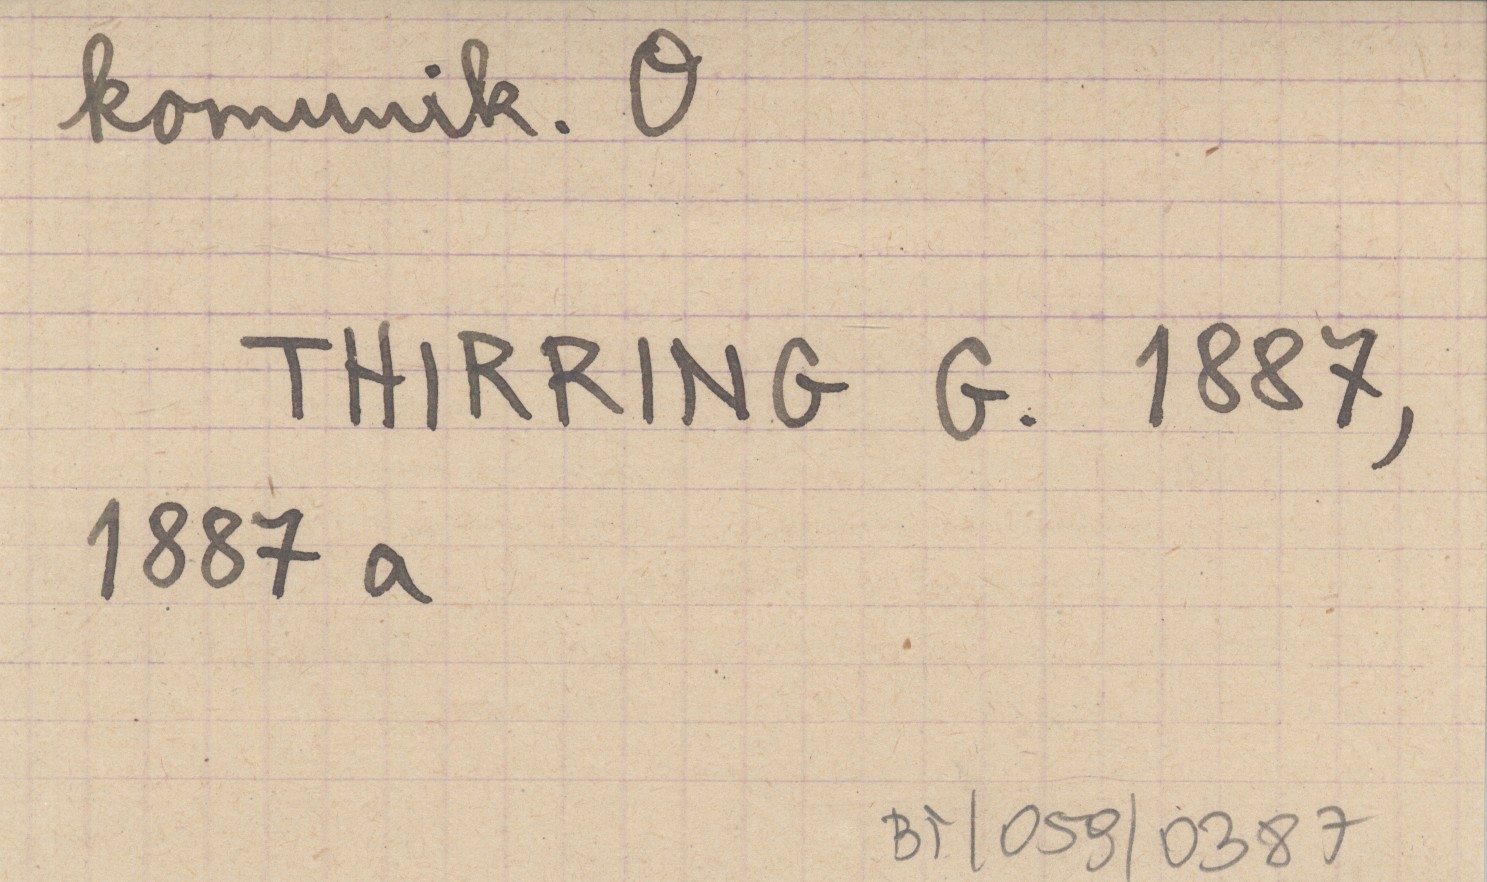 komunik. O
THIRRING G. 1887,
1887 a
BT/059/0387